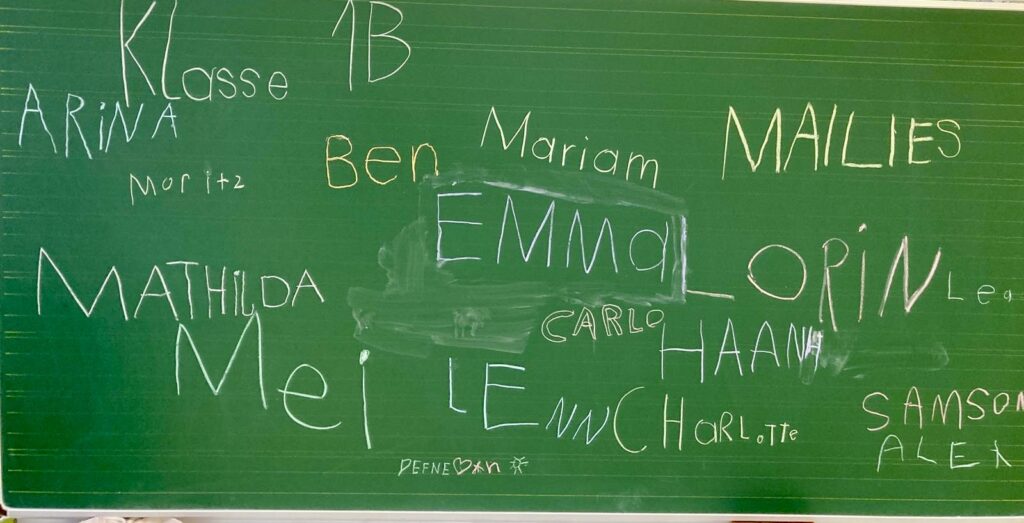 Klasse 1B
ARiNA
Moritz
Ben
Mariam
MAILIES
EMMa
LORiN
Lea
MATHiLDA
CARLO
HAANH
Mei
LENN
CHaRLotte
SAMSON
ALEX
DEFNE